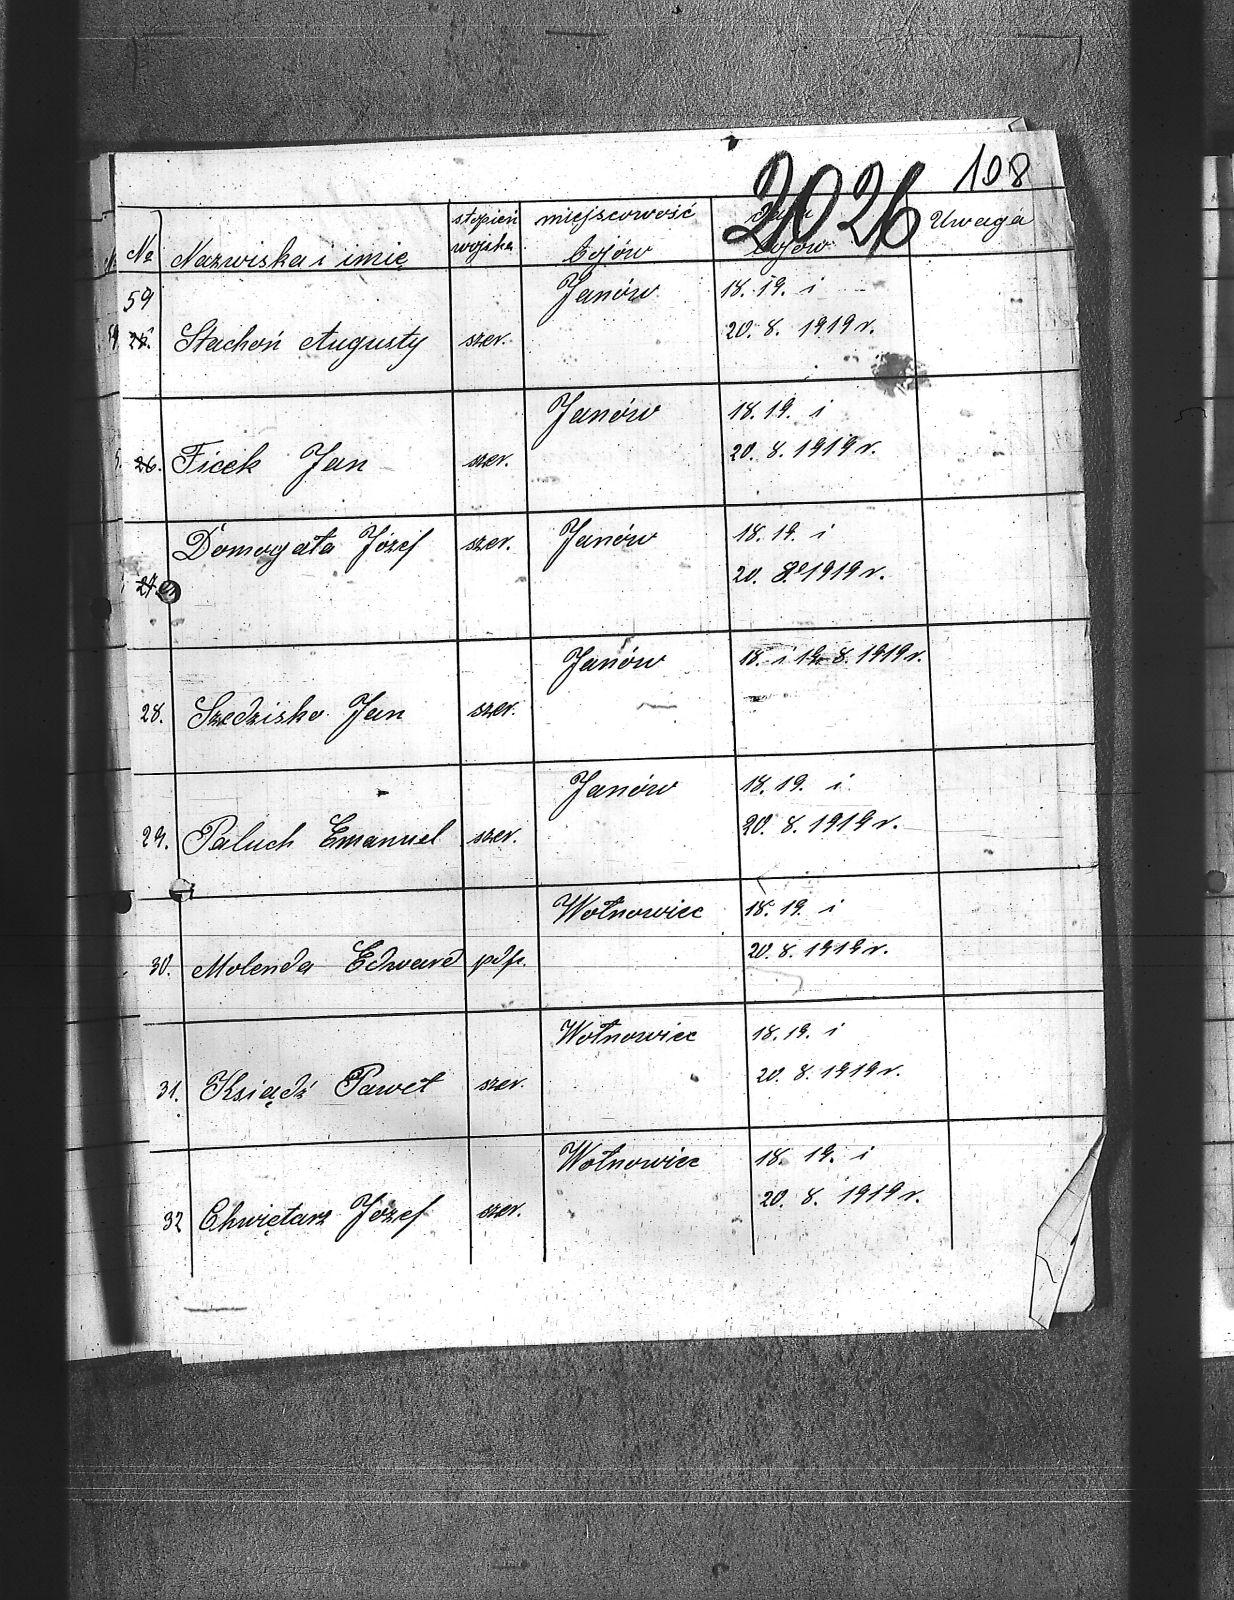 2026 108
№ Nazwiska i imię stopień wojska miejscowość bojów data bojów Uwaga
59 Janów 18. 19. i
25. Stachoń Augusty szer. 20. 8. 1919 r.
Janów 18. 19. i
26. Ficek Jan szer. 20. 8. 1919 r.
Domogała Józef szer. Janów 18. 19. i
27. 20. 8. 1919 r.
Janów 18. i 19. 8. 1919 r.
28. Szedzisko Jan szer.
Janów 18. 19. i
29. Paluch Emanuel szer. 20. 8. 1919 r.
Wołnowiec 18. 19. i
30. Molenda Edward pdp. 20. 8. 1919 r.
Wołnowiec 18. 19. i
31. Ksiądź Paweł szer. 20. 8. 1919 r.
Wołnowiec 18. 19. i
32 Chwiętarz Józef szer. 20. 8. 1919 r.